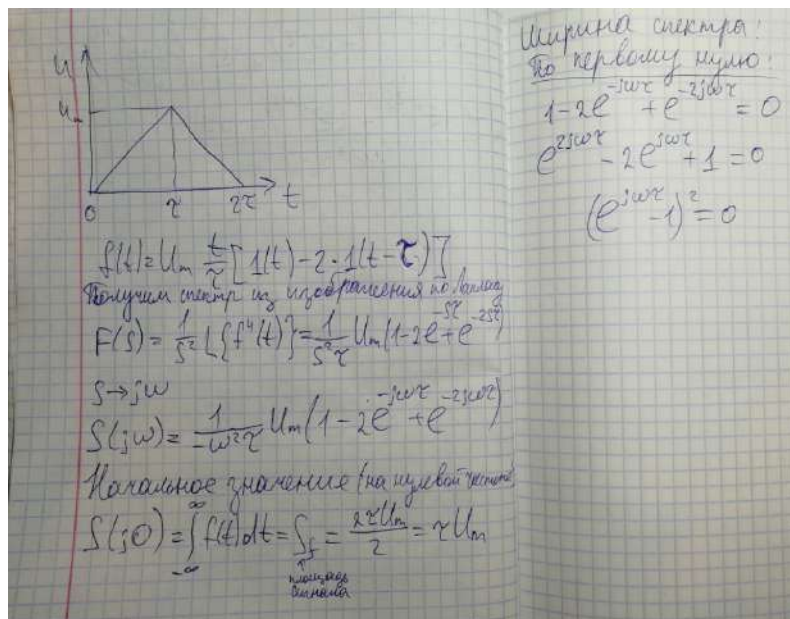 U
Uₘ
0 τ 2τ t
f(t)=Uₘ t/τ [1(t)-2·1(t-τ)]
Получим спектр из изображения по Лапласу
F(s) = 1/s² L{f"(t)} = 1/(s²τ) Uₘ(1-2e^(-sτ)+e^(-2sτ))
s→jω
S(jω) = 1/(-ω²τ) Uₘ(1-2e^(-jωτ)+e^(-2jωτ))
Начальное значение (на нулевой частоте)
S(j0) = ∫_(-∞)^∞ f(t)dt = S_f = 2τUₘ/2 = τUₘ
↑
площадь
сигнала
Ширина спектры:
По первому нулю:
1-2e^(-jωτ)+e^(-2jωτ) = 0
e^(2jωτ) - 2e^(jωτ) + 1 = 0
(e^(jωτ) - 1)² = 0